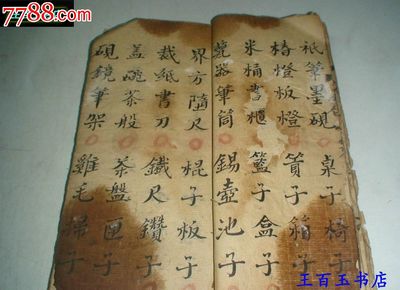 7788.com
祇筆墨硯 桌子椅子
椿燈板燈 子箱子
氷桶書櫃 籃子盒子
甆器筆筒 錫壺池子
界方隨尺 棍子板子
裁紙書刀 鐵尺鑽子
盖碗茶般 茶盤匣子
硯鏡筆架 雞毛掃子
王百玉书店